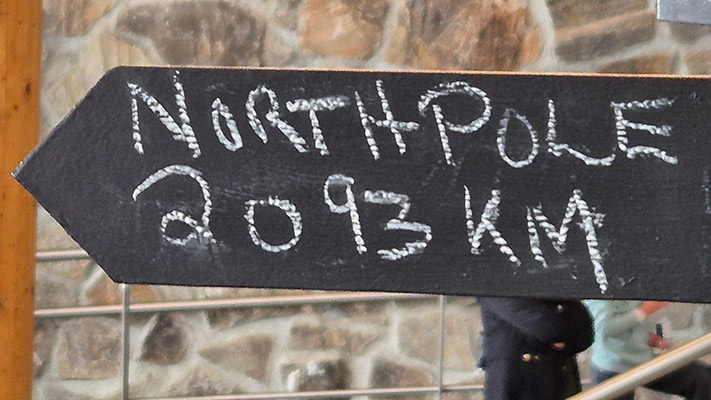 NORTH POLE
2093 KM